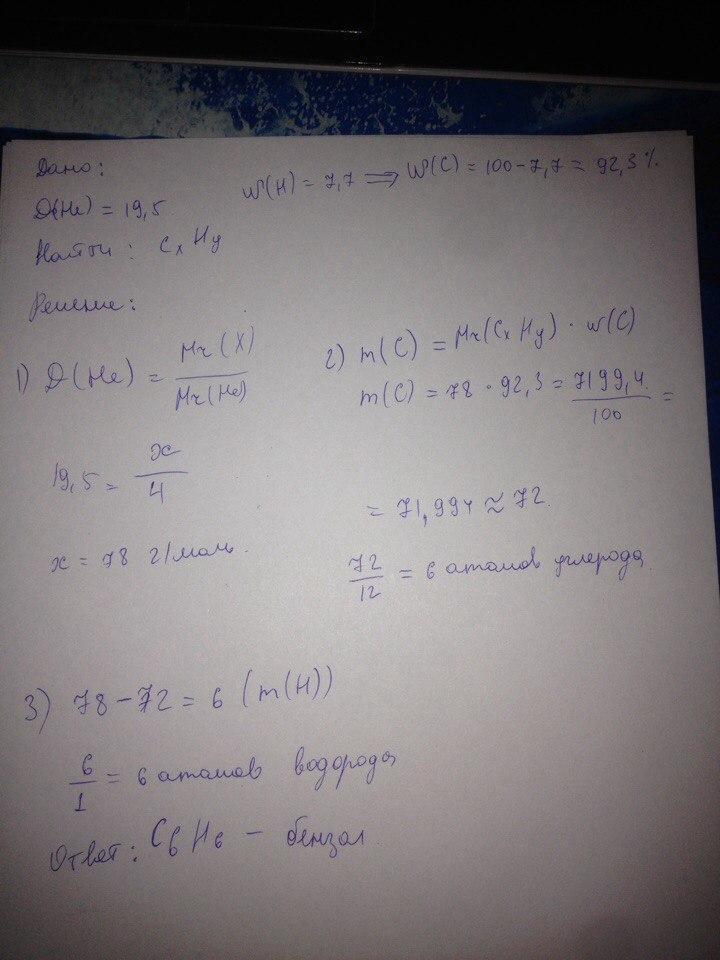 Дано:
D(He) = 19,5
w(H) = 7,7 => W(C) = 100-7,7 = 92,3%
Найти: CxHy
Решение:
1) D(He) = Mr(X) / Mr(He)
19,5 = x / 4
x = 78 г/моль.
2) m(C) = Mr(CxHy) · w(C)
m(C) = 78 · 92,3 = 7199,4 / 100 =
= 71,994 ≈ 72.
72 / 12 = 6 атомов углерода
3) 78-72 = 6 (m(H))
6 / 1 = 6 атомов водорода
Ответ: C6H6 - бензол